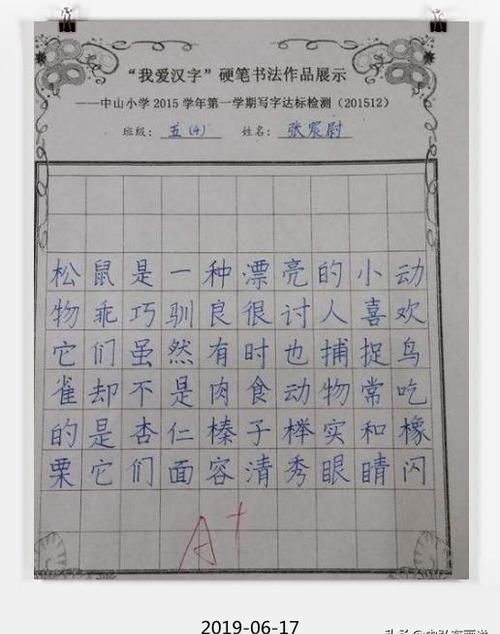 “我爱汉字”硬笔书法作品展示
——中山小学2015学年第一学期写字达标检测(201512)
班级：五(4) 姓名：张宸尉
松鼠是一种漂亮的小动
物乖巧驯良很讨人喜欢
它们虽然有时也捕捉鸟
雀却不是肉食动物常吃
的是杏仁榛子榉实和橡
栗它们面容清秀眼睛闪
A+
2019-06-17